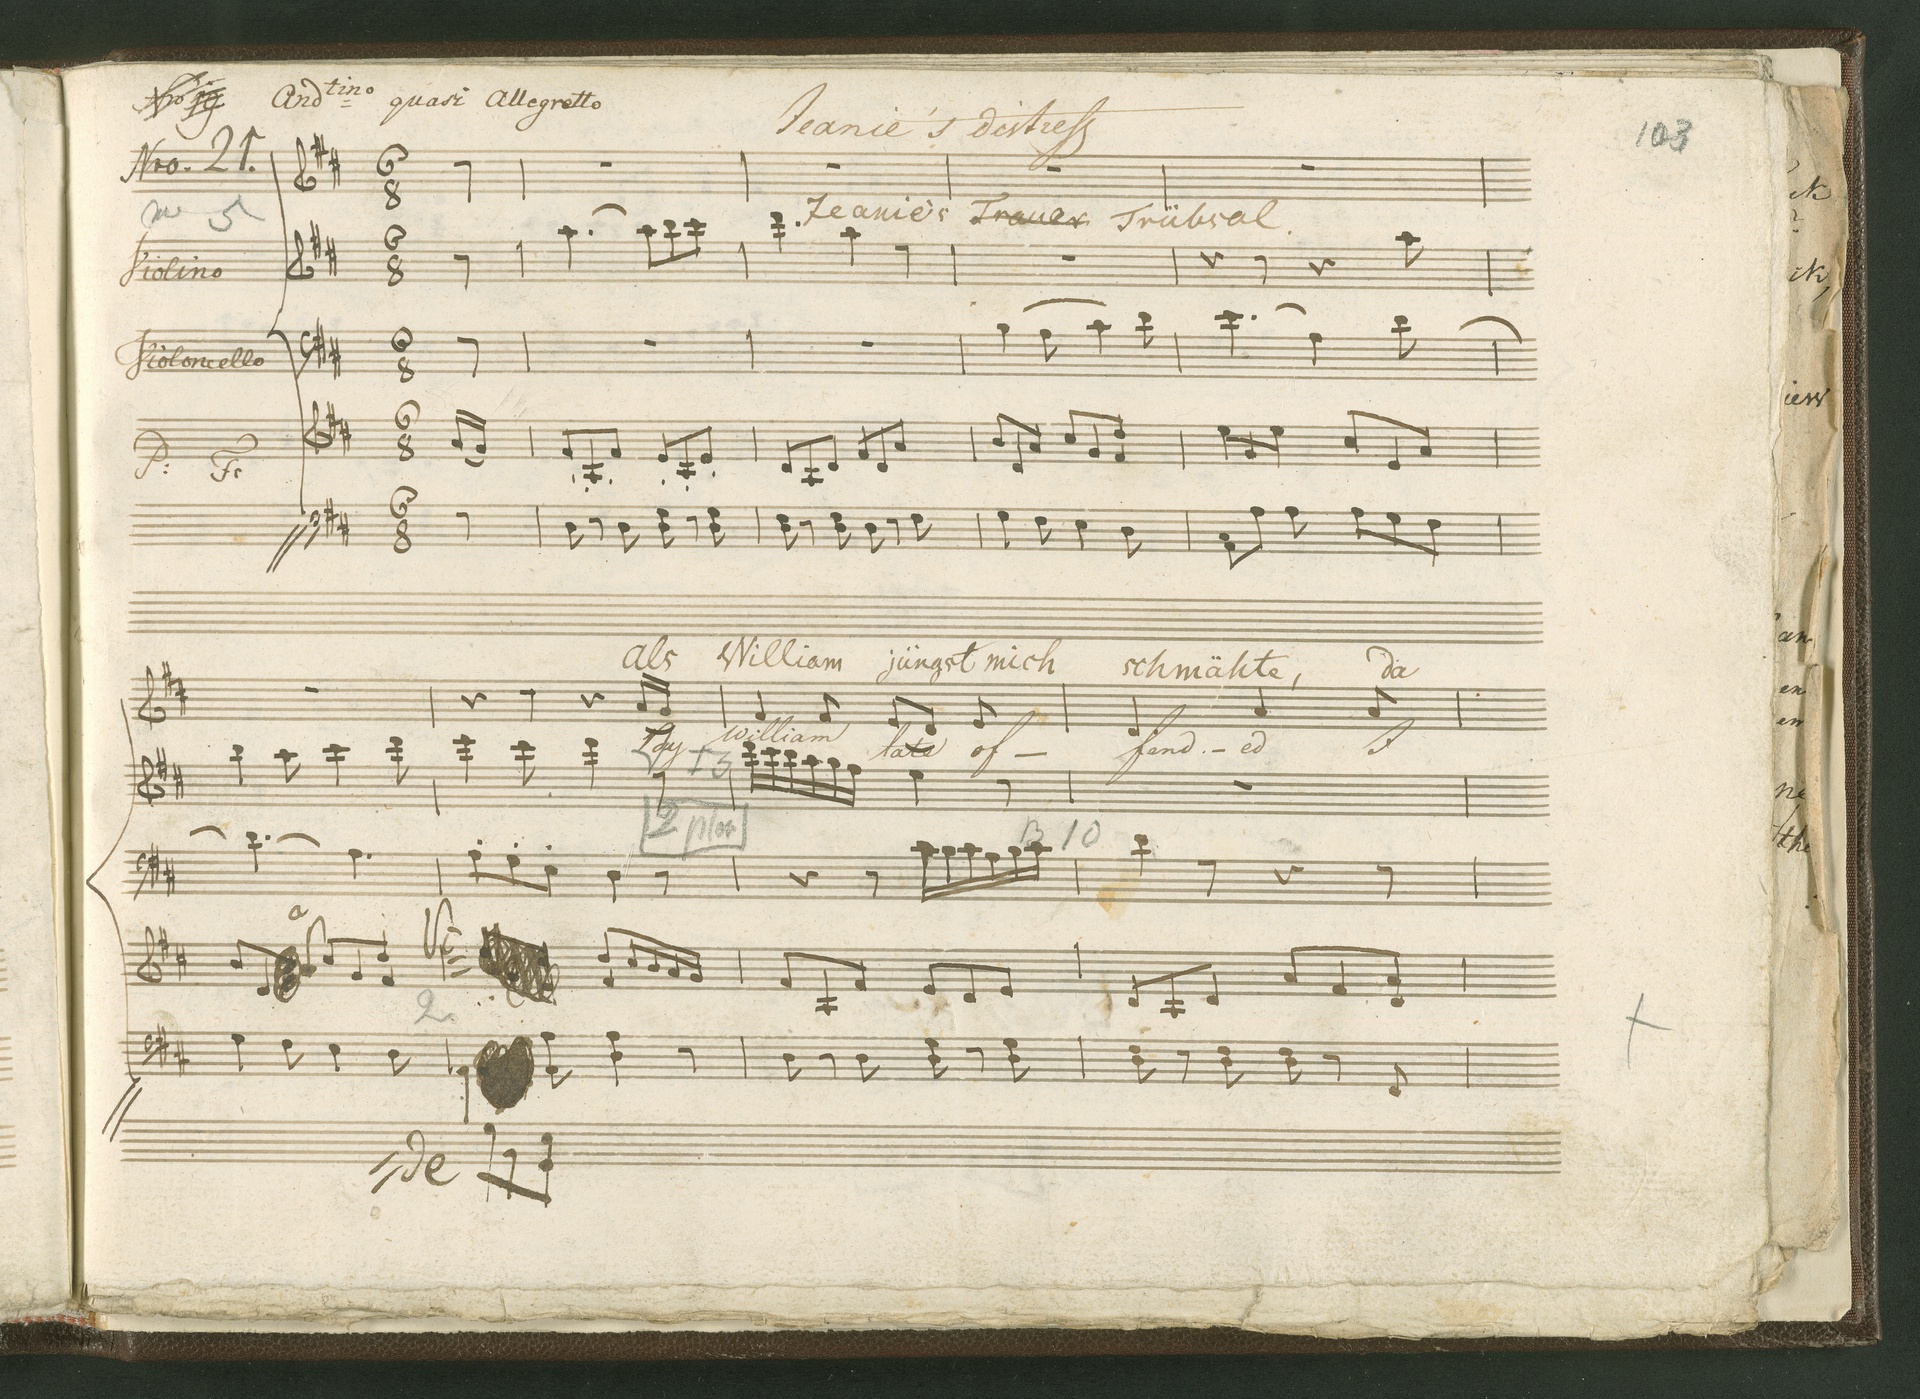 Andtino quasi Allegretto
Jeanie's distress
103
Nro. 21.
Jeanie's Trauer Trübsal.
Violino
Violoncello
P: F:
als William jüngst mich schmähte, da
By William late of — fend - ed I
2
B 10
a
Vi=
2.
=de